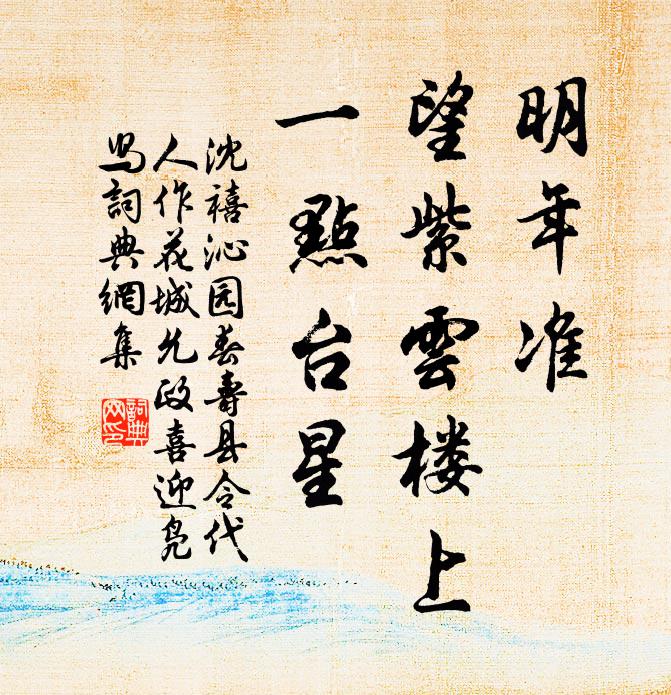 明年准
望紫雲楼上
一點台星
沈禧沁园春壽县令代
人作花城允政喜迎凫
舄詞典網集
詞典
网印